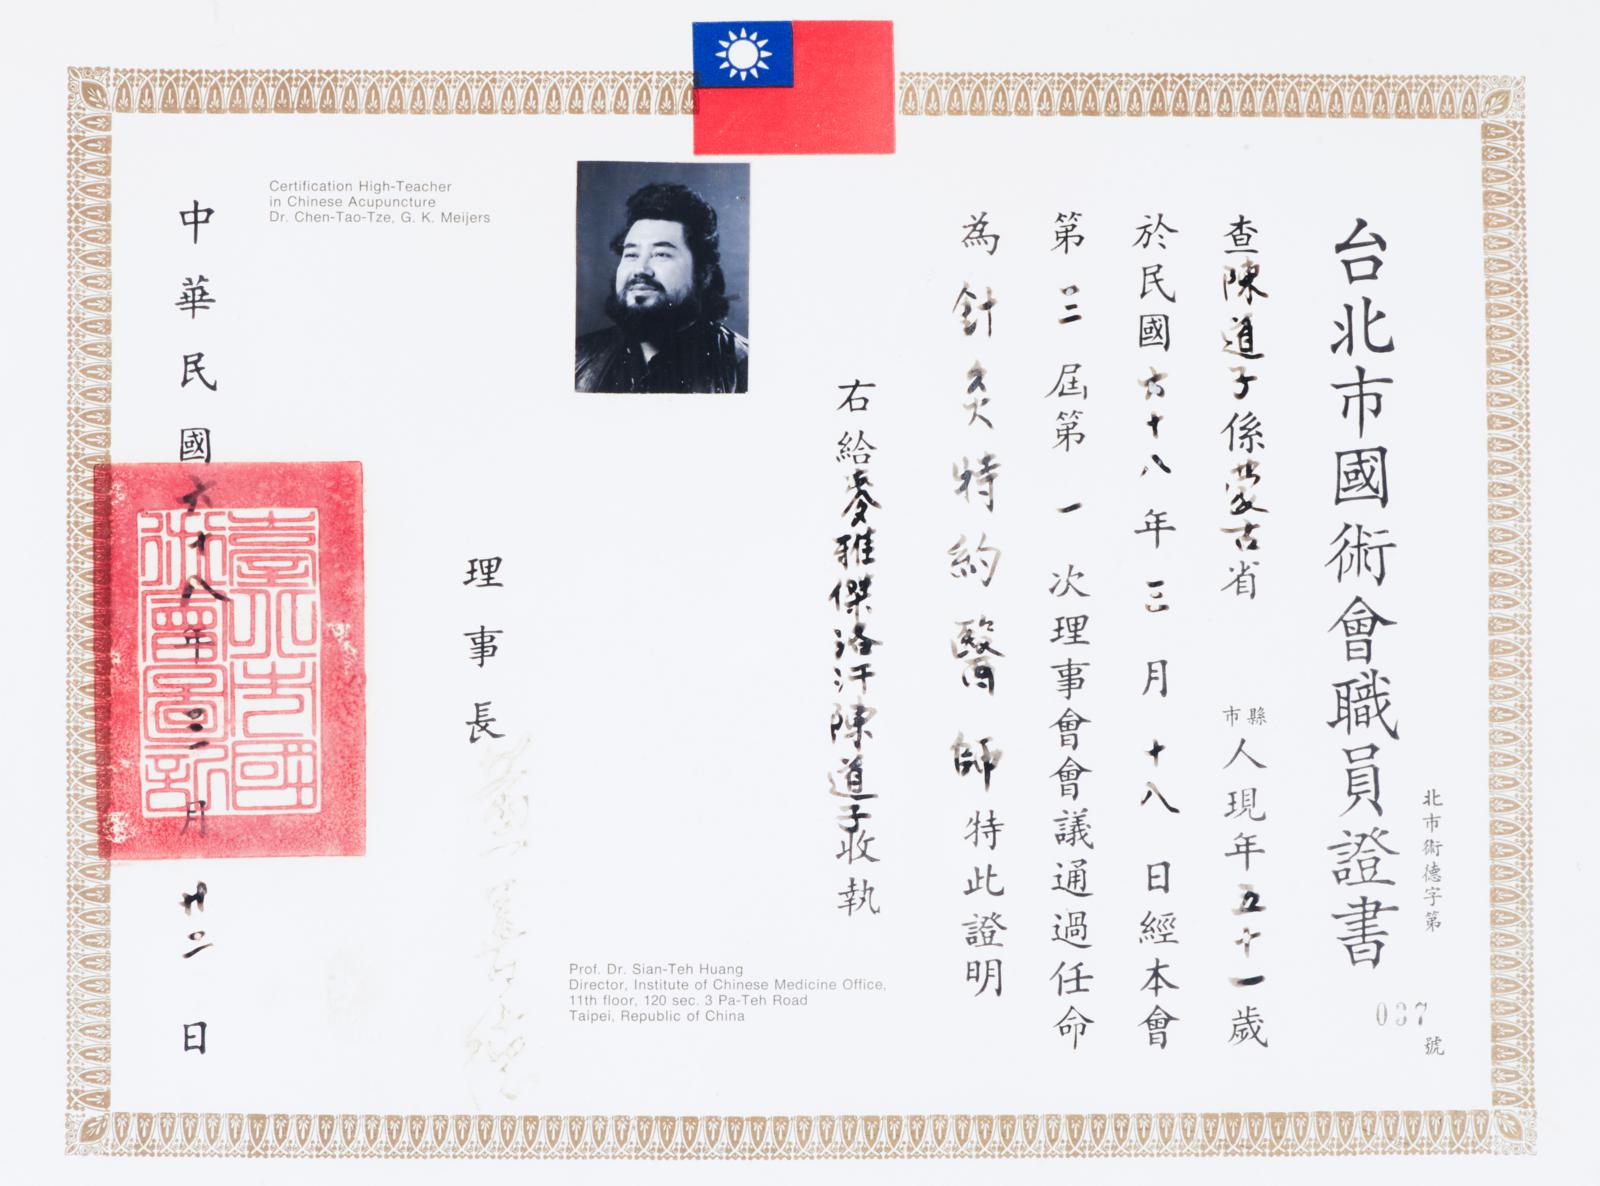 台北市國術會職員證書
北市術德字第
037
號
查陳道子係蒙古省
縣
市
人現年五十一歲
於民國六十八年三月十八日經本會
第二屆第一次理事會會議通過任命
為針灸特約醫師特此證明
右給麥雅傑洛汗陳道子收執
Certification High-Teacher
in Chinese Acupuncture
Dr. Chen-Tao-Tze, G. K. Meijers
Prof. Dr. Sian-Teh Huang
Director, Institute of Chinese Medicine Office,
11th floor, 120 sec. 3 Pa-Teh Road
Taipei, Republic of China
理事長
中華民國六十八年三月廿二日
臺北市國
術會圖記